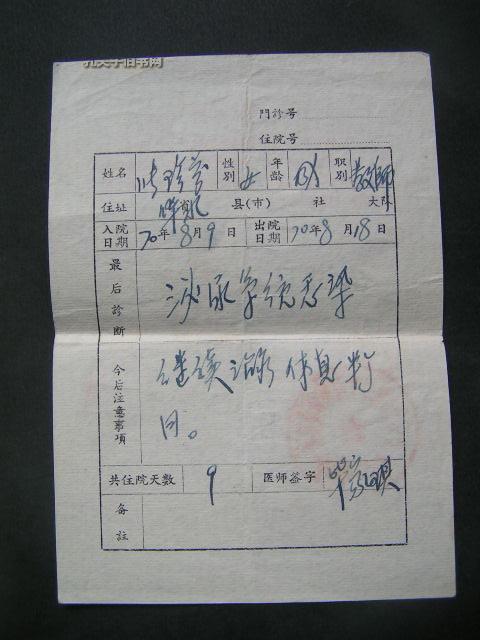 孔夫子旧书网
門診号
住院号
姓名 性别 女 年龄 职别 教师
住址 县(市) 社 大队
入院日期 70年8月9日 出院日期 70年8月18日
最后診断 泌尿系统感染
今后注意事項 继续治疗 休息
日。
共住院天数 9 医师签字
备註